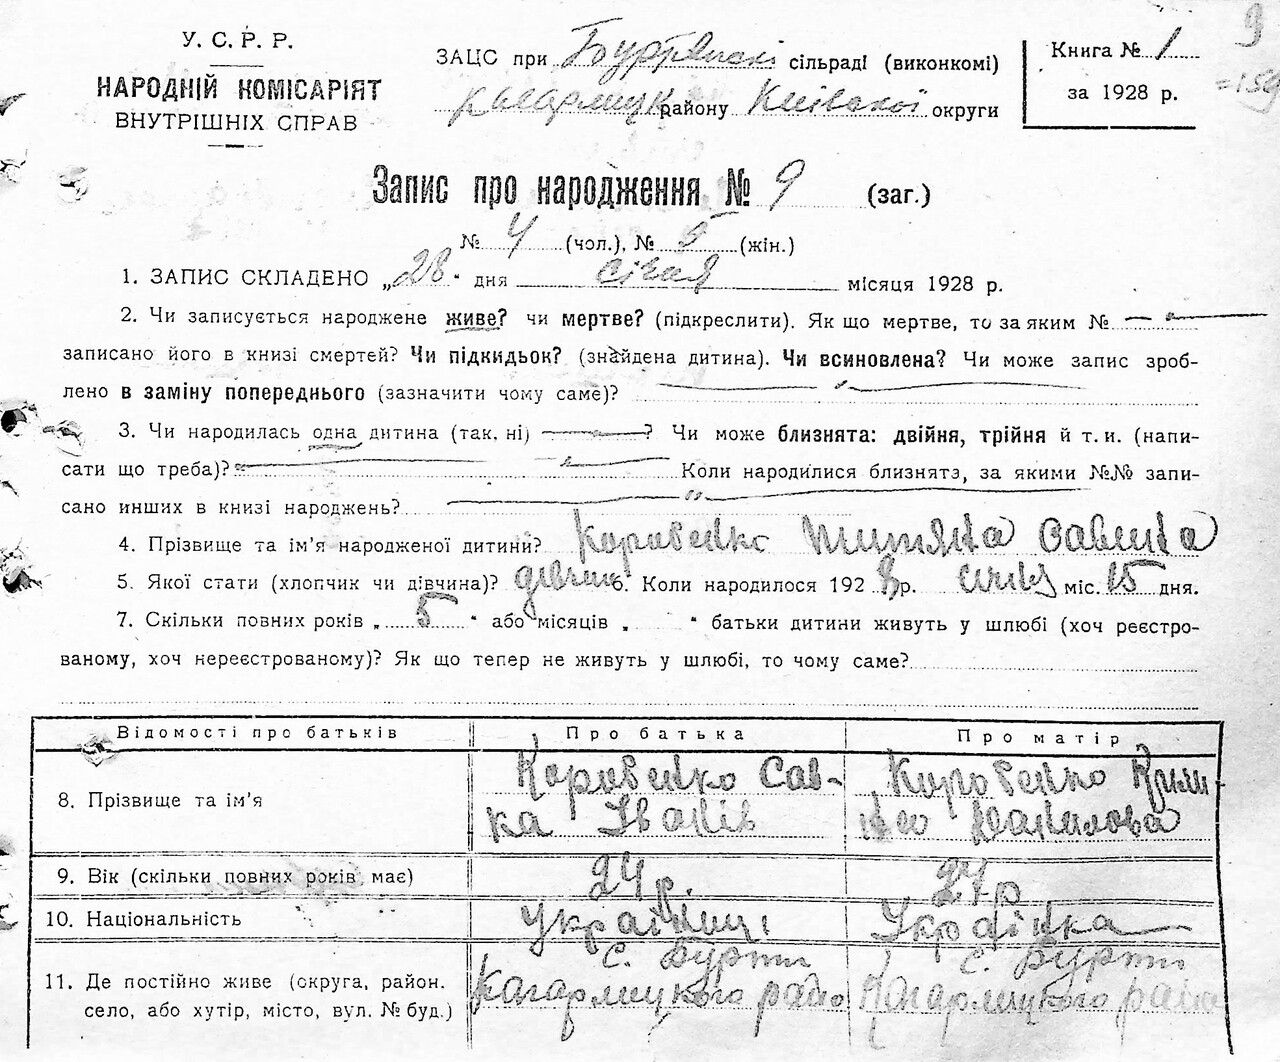 У. С. Р. Р.
НАРОДНІЙ КОМІСАРІЯТ
ВНУТРІШНІХ СПРАВ
ЗАЦС при Буртянскі сільраді (виконкомі)
Кагарлицк району Київської округи
Книга № 1
за 1928 р.
9
=159
Запис про народження № 9 (заг.)
№ 4 (чол.), № 5 (жін.)
1. ЗАПИС СКЛАДЕНО „28" дня січня місяця 1928 р.
2. Чи записується народжене живе? чи мертве? (підкреслити). Як що мертве, то за яким №
записано його в книзі смертей? Чи підкидьок? (знайдена дитина). Чи всиновлена? Чи може запис зроб-
лено в заміну попереднього (зазначити чому саме)?
3. Чи народилась одна дитина (так, ні) ? Чи може близнята: двійня, трійня й т. и. (напи-
сати що треба)? Коли народилися близнята, за якими №№ запи-
сано инших в книзі народжень?
4. Прізвище та ім'я народженої дитини? Коровенко Титяна Савина
5. Якої стати (хлопчик чи дівчина)? дівчин 6. Коли народилося 1928 р. січня міс. 15 дня.
7. Скільки повних років „ 5 " або місяців „ " батьки дитини живуть у шлюбі (хоч реєстро-
ваному, хоч нереєстрованому)? Як що тепер не живуть у шлюбі, то чому саме?
Відомості про батьків Про батька Про матір
8. Прізвище та ім'я
Коровенко Сав-
ка Іванів
Коровенко
Данилова
9. Вік (скільки повних років має) 24 р. 24 р
10. Національність українці Українка
11. Де постійно живе (округа, район.
село, або хутір, місто, вул. № буд.)
с. Бурти
Кагарлицкого раіо
с. Бурти
Кагарлицкого раіо